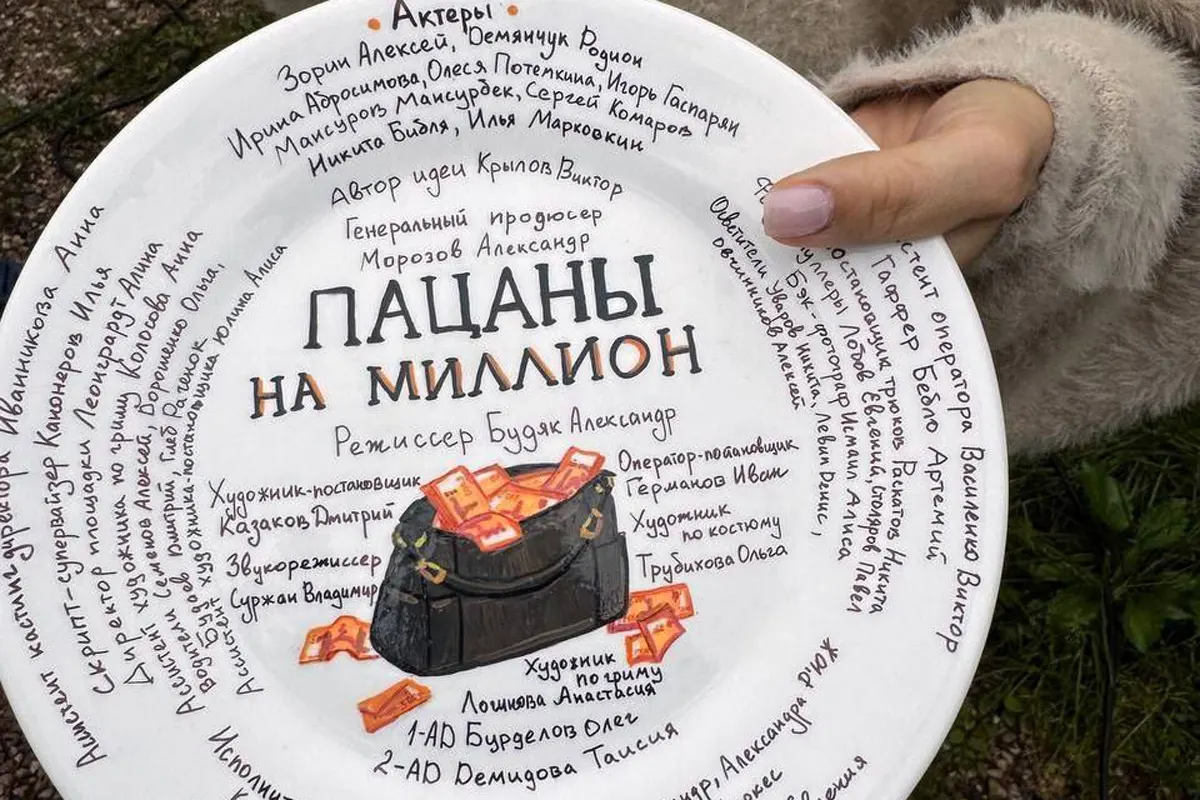 Актеры
Зорин Алексей, Демянчук Родион
Ирина Абросимова, Олеся Потемкина, Игорь Гаспарян
Мансуров Мансурбек, Сергей Комаров
Никита Библя, Илья Марковкин
Автор идеи Крылов Виктор
Генеральный продюсер
Морозов Александр
ПАЦАНЫ
НА МИЛЛИОН
Режиссер Будяк Александр
Художник-постановщик
Казаков Дмитрий
Звукорежиссер
Суржан Владимир
Оператор-постановщик
Германов Иван
Художник
по костюму
Трубихова Ольга
Художник
по гриму
Лошнова Анастасия
1-AD Бурделов Олег
2-AD Демидова Таисия
Ассистент кастинг директора Иванникова Анна
Скрипт-супервайзер Канонеров Илья
Директор площадки Леонгардт Алина
Ассистент художника по гриму Колосова Анна
Водители Семенов Алексей, Ворошенко Ольга,
Бугаев Дмитрий, Глеб Рагонок
Ассистент художника-постановщика Юлина Алиса
оператора Василенко Виктор
Гаффер Бебло Артемий
Постановщик трюков Раскатов Никита
Лобов Евгений, Столяров Павел
Бэк-фотограф Исмаил Алиса
Осветители Уваров Никита, Левин Денис,
Овчинников Алексей
Александра